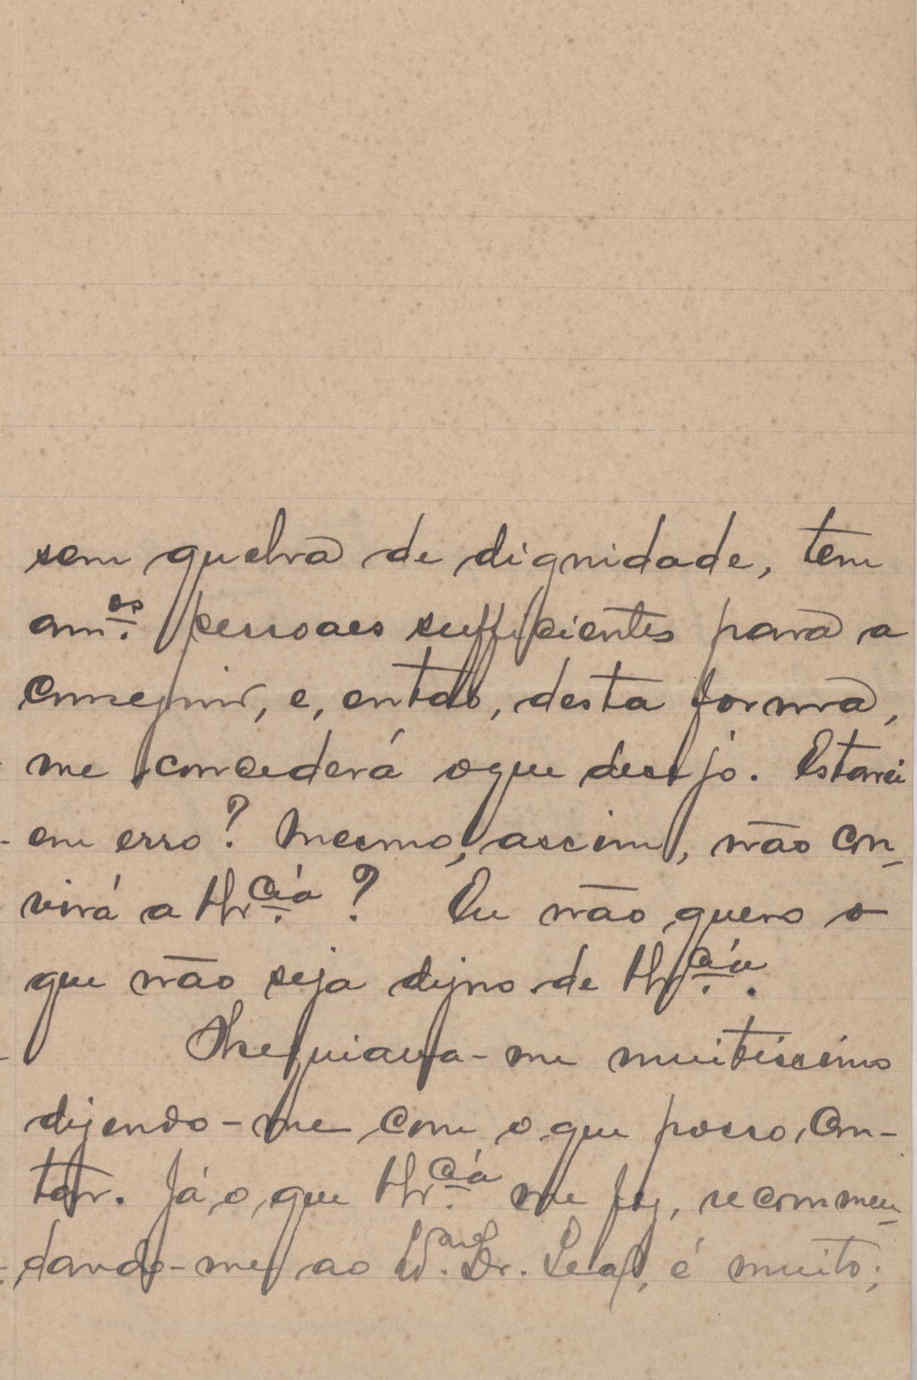 sem quebra de dignidade, tem
am.os pessoaes sufficientes para a
conseguir, e, então, desta forma,
me concederá o que desejo. Estarei
em erro? Mesmo, assim, não con-
virá a V.cia? Eu não quero o
que não seja digno de V.cia.
Obsequiava-me muitissimo
dizendo-me com o que posso con-
tar. Já o que V.cia me fez, recommen-
dando-me ao Dr. Leal, é muito;